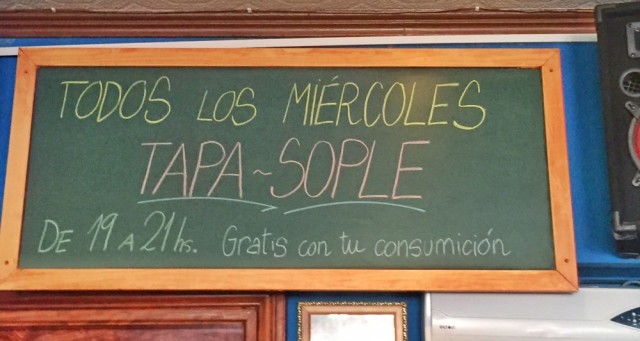 TODOS LOS MIÉRCOLES
TAPA~SOPLE
DE 19 A 21 hs. Gratis con tu consumición